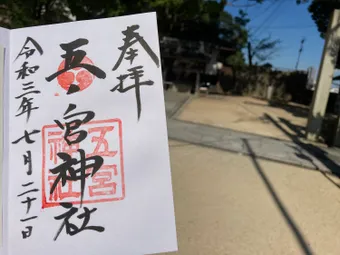 奉拝
五ノ宮神社
五宮
神社
令和三年七月二十一日